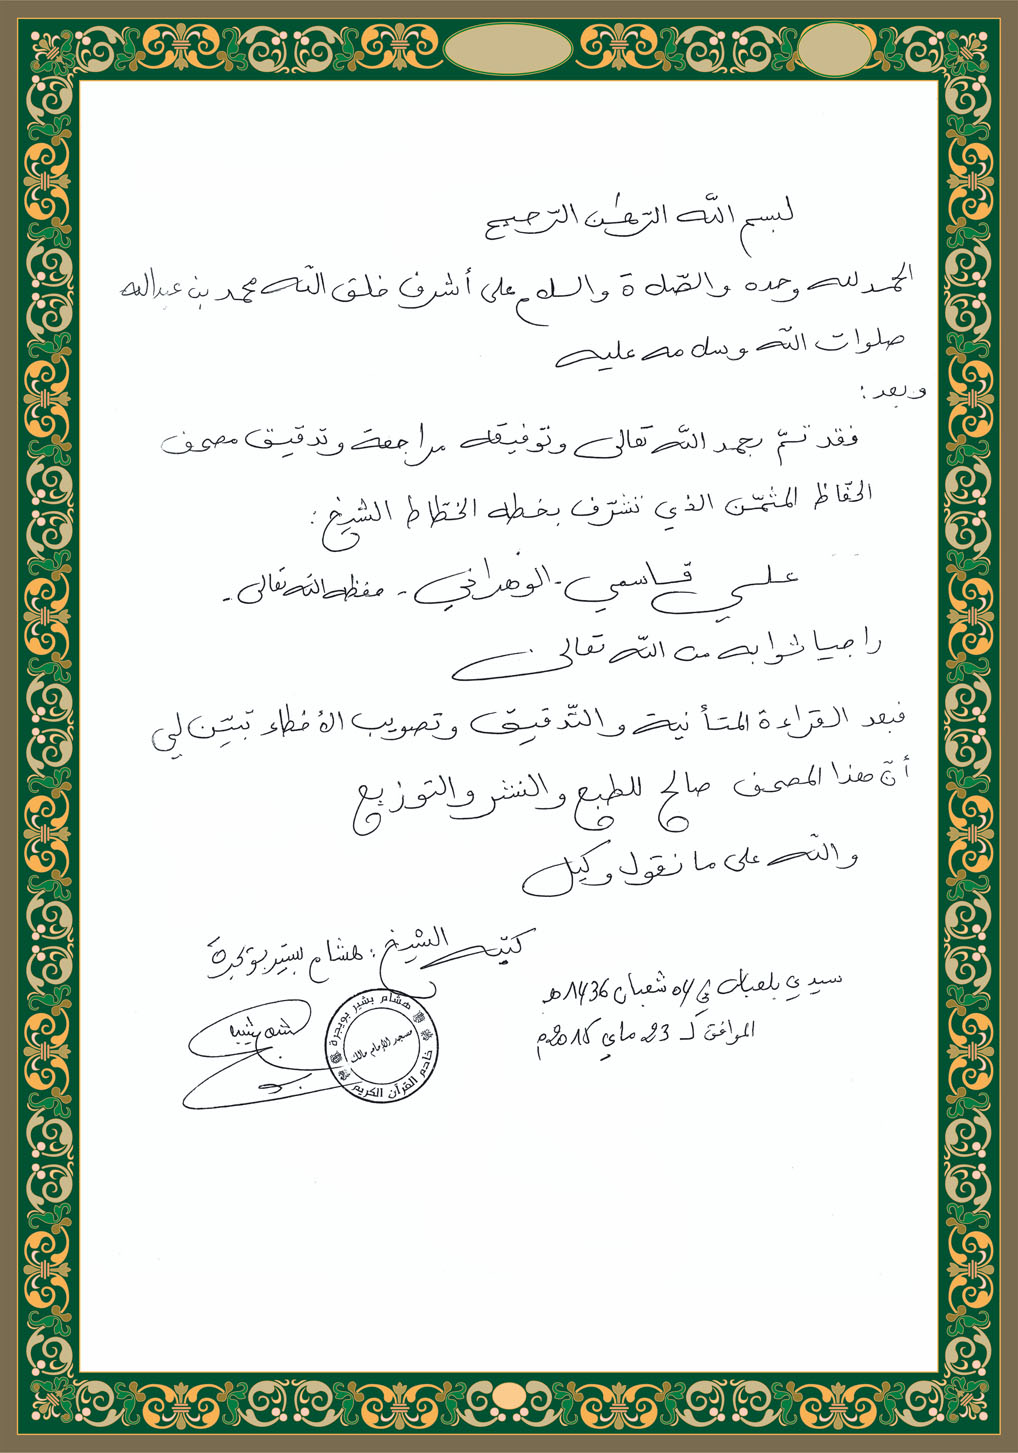 بسم الله الرحمن الرحيم
الحمد لله وحده والصّلاة والسلام على أشرف خلق الله محمد بن عبد الله
صلوات الله وسلامه عليه
وبعد:
فقد تمّ بحمد الله تعالى وتوفيقه مراجعة وتدقيق مصحف
الحفّاظ المثمّن الذي تشرّف بخطه الخطّاط الشيخ:
علي قاسمي - الوهراني - حفظه الله تعالى -
راجيا ثوابه من الله تعالى
فبعد القراءة المتأنية والتّدقيق وتصويب الأخطاء تبيّن لي
أنّ هذا المصحف صالح للطبع والنشر والتوزيع
والله على ما نقول وكيل
كتبه الشيخ: هشام بشير بويجرة
سيدي بلعباس في 04 شعبان 1436هـ
الموافق لـ 23 ماي 2015م
هشام بشير بويجرة
مسجد الإمام مالك
خادم القرآن الكريم